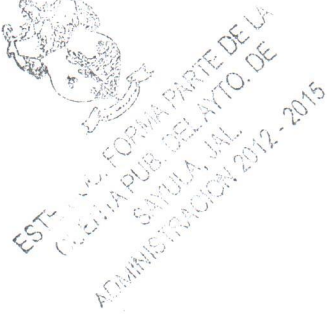 FORMA PARTE DE LA
PUB. DEL AYTO. DE
SAYULA, JAL.
ADMINISTRACION 2012 - 2015